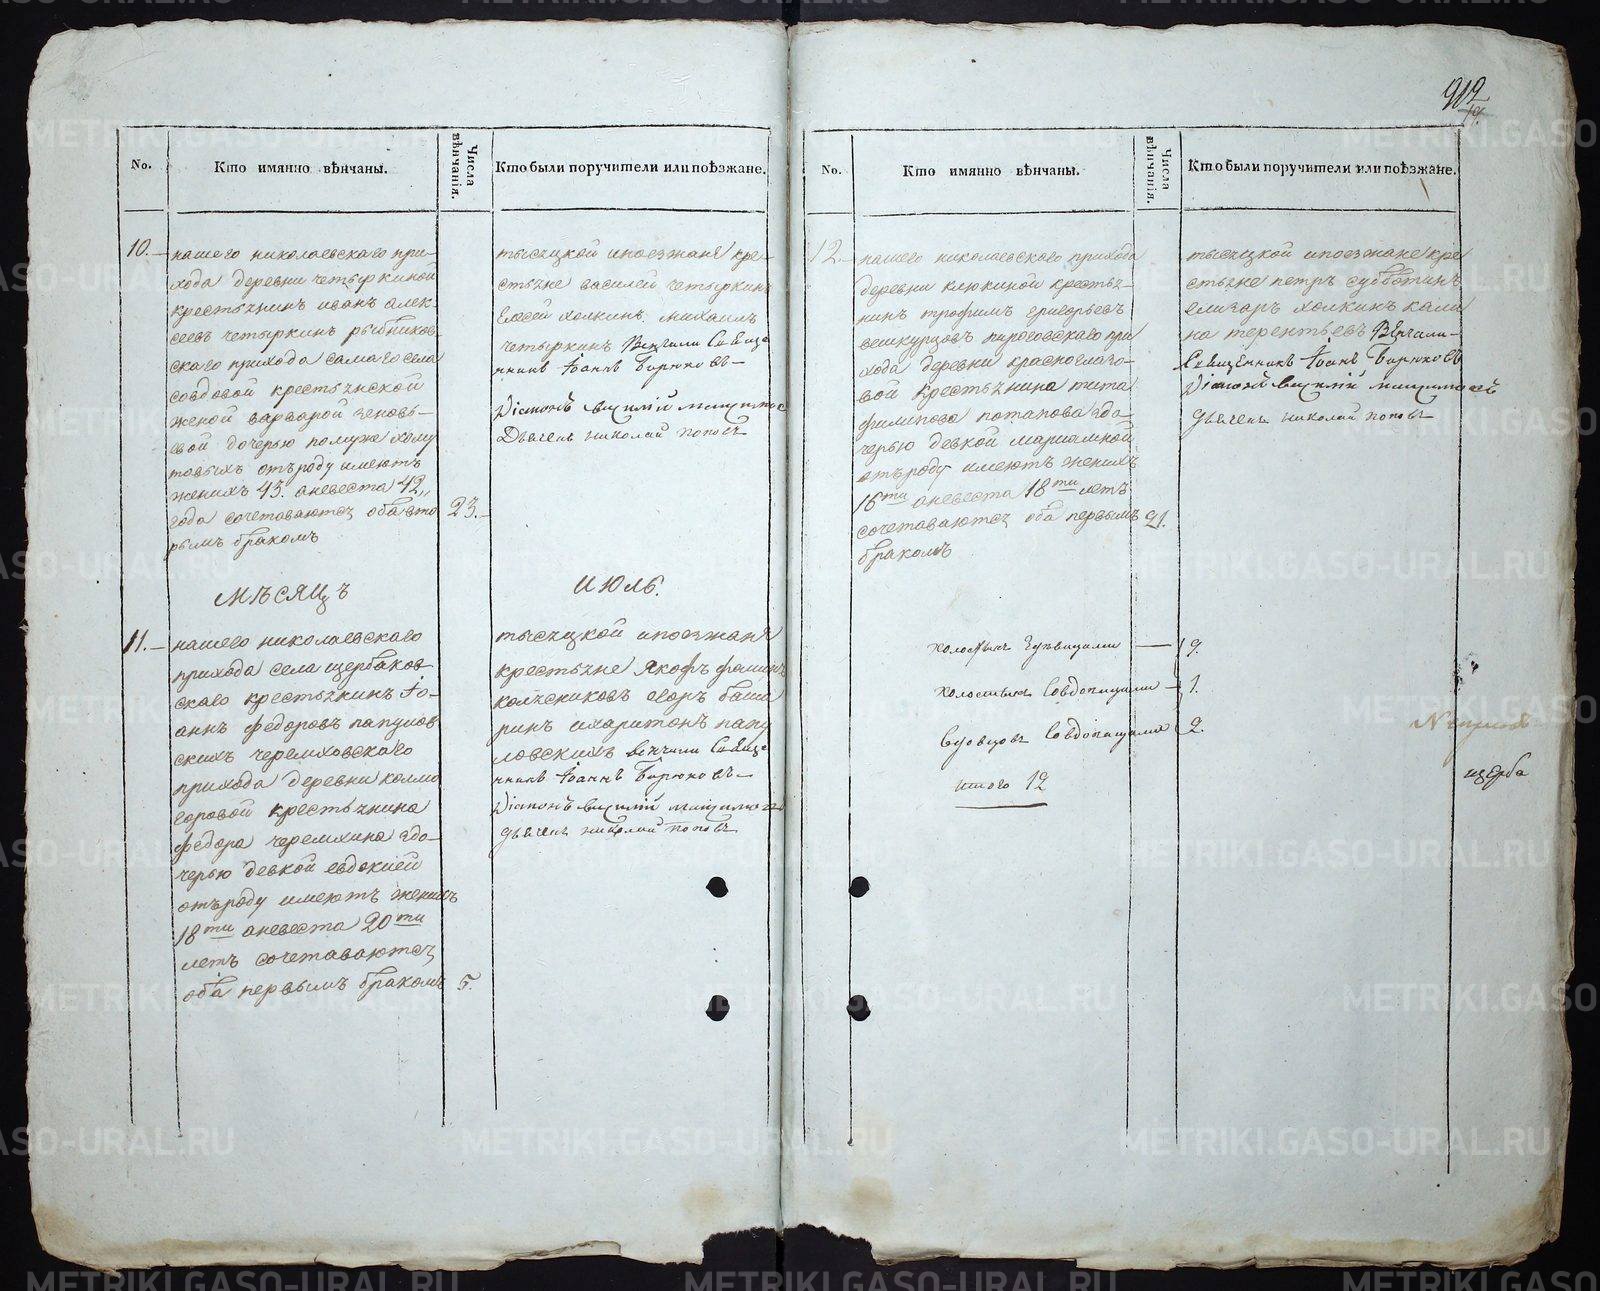 912
No.
Кто имянно вѣнчаны.
Числа вѣнчанія.
Кто были поручители или поѣзжане.
10.
нашего николаевскаго при-
хода деревни четыркиной
крестьянинъ иванъ алек-
сеевъ четыркинъ рыбников
скаго прихода самаго села
совдовой крестьянской
женой варварой зеновь-
евой дочерью помуже хому
товыхъ отъроду имеютъ
женихъ 43. аневеста 42,,
года сочетаваются оба вто
рымъ бракомъ
23.
тысяцкой ипоезжаня кре-
стьяне василей четыркинъ
Елисей холкинъ михаилъ
четыркинъ Венчали Свяще
нникъ Іоаннъ Бирюковъ
Діаконъ василій
Дьячекъ николай поповъ
мѣсяцъ
июль.
11.
нашего николаевскаго
прихода села щербаков
скаго крестьянинъ Іо-
аннъ федоровъ папулов
скихъ черемховскаго
прихода деревни колмо
горовой крестьянина
федора черемхина здо-
черью девкой евдокией
отъроду имеютъ женихъ
18ти аневеста 20ти
летъ сочетаваются
оба первымъ бракомъ
5.
тысяцкой ипоезжаня
крестьяне Якофъ
колясниковъ егоръ баши
ринъ ихаритонъ папу
ловскихъ венчали Свяще
нникъ Іоаннъ Бирюковъ
Діаконъ василій
дьячекъ николай поповъ
No.
Кто имянно вѣнчаны.
Числа вѣнчанія.
Кто были поручители или поѣзжане.
12.
нашего николаевскаго прихода
деревни клюкиной крестья-
нинъ трофимъ григорьевъ
вешкурцовъ пироговскаго при
хода деревни красноглазо-
вой крестьянина тита
филипова потапова здо-
черью девкой мариамной
отъроду имеютъ женихъ
18ти аневеста 18ти летъ
сочетаваются оба первымъ
бракомъ
21.
тысяцкой ипоезжане кре
стьяне петръ субботинъ
елизаръ холкинъ кали
на терентьевъ Венчали
Священникъ Іоаннъ Бирюковъ
Діаконъ василій
дьячекъ николай поповъ
холостыхъ здевицами — 9.
холостыхъ совдовицами — 1.
вдовцовъ совдовицами 2.
итого 12
щерба
METRIKI.GASO-URAL.RU